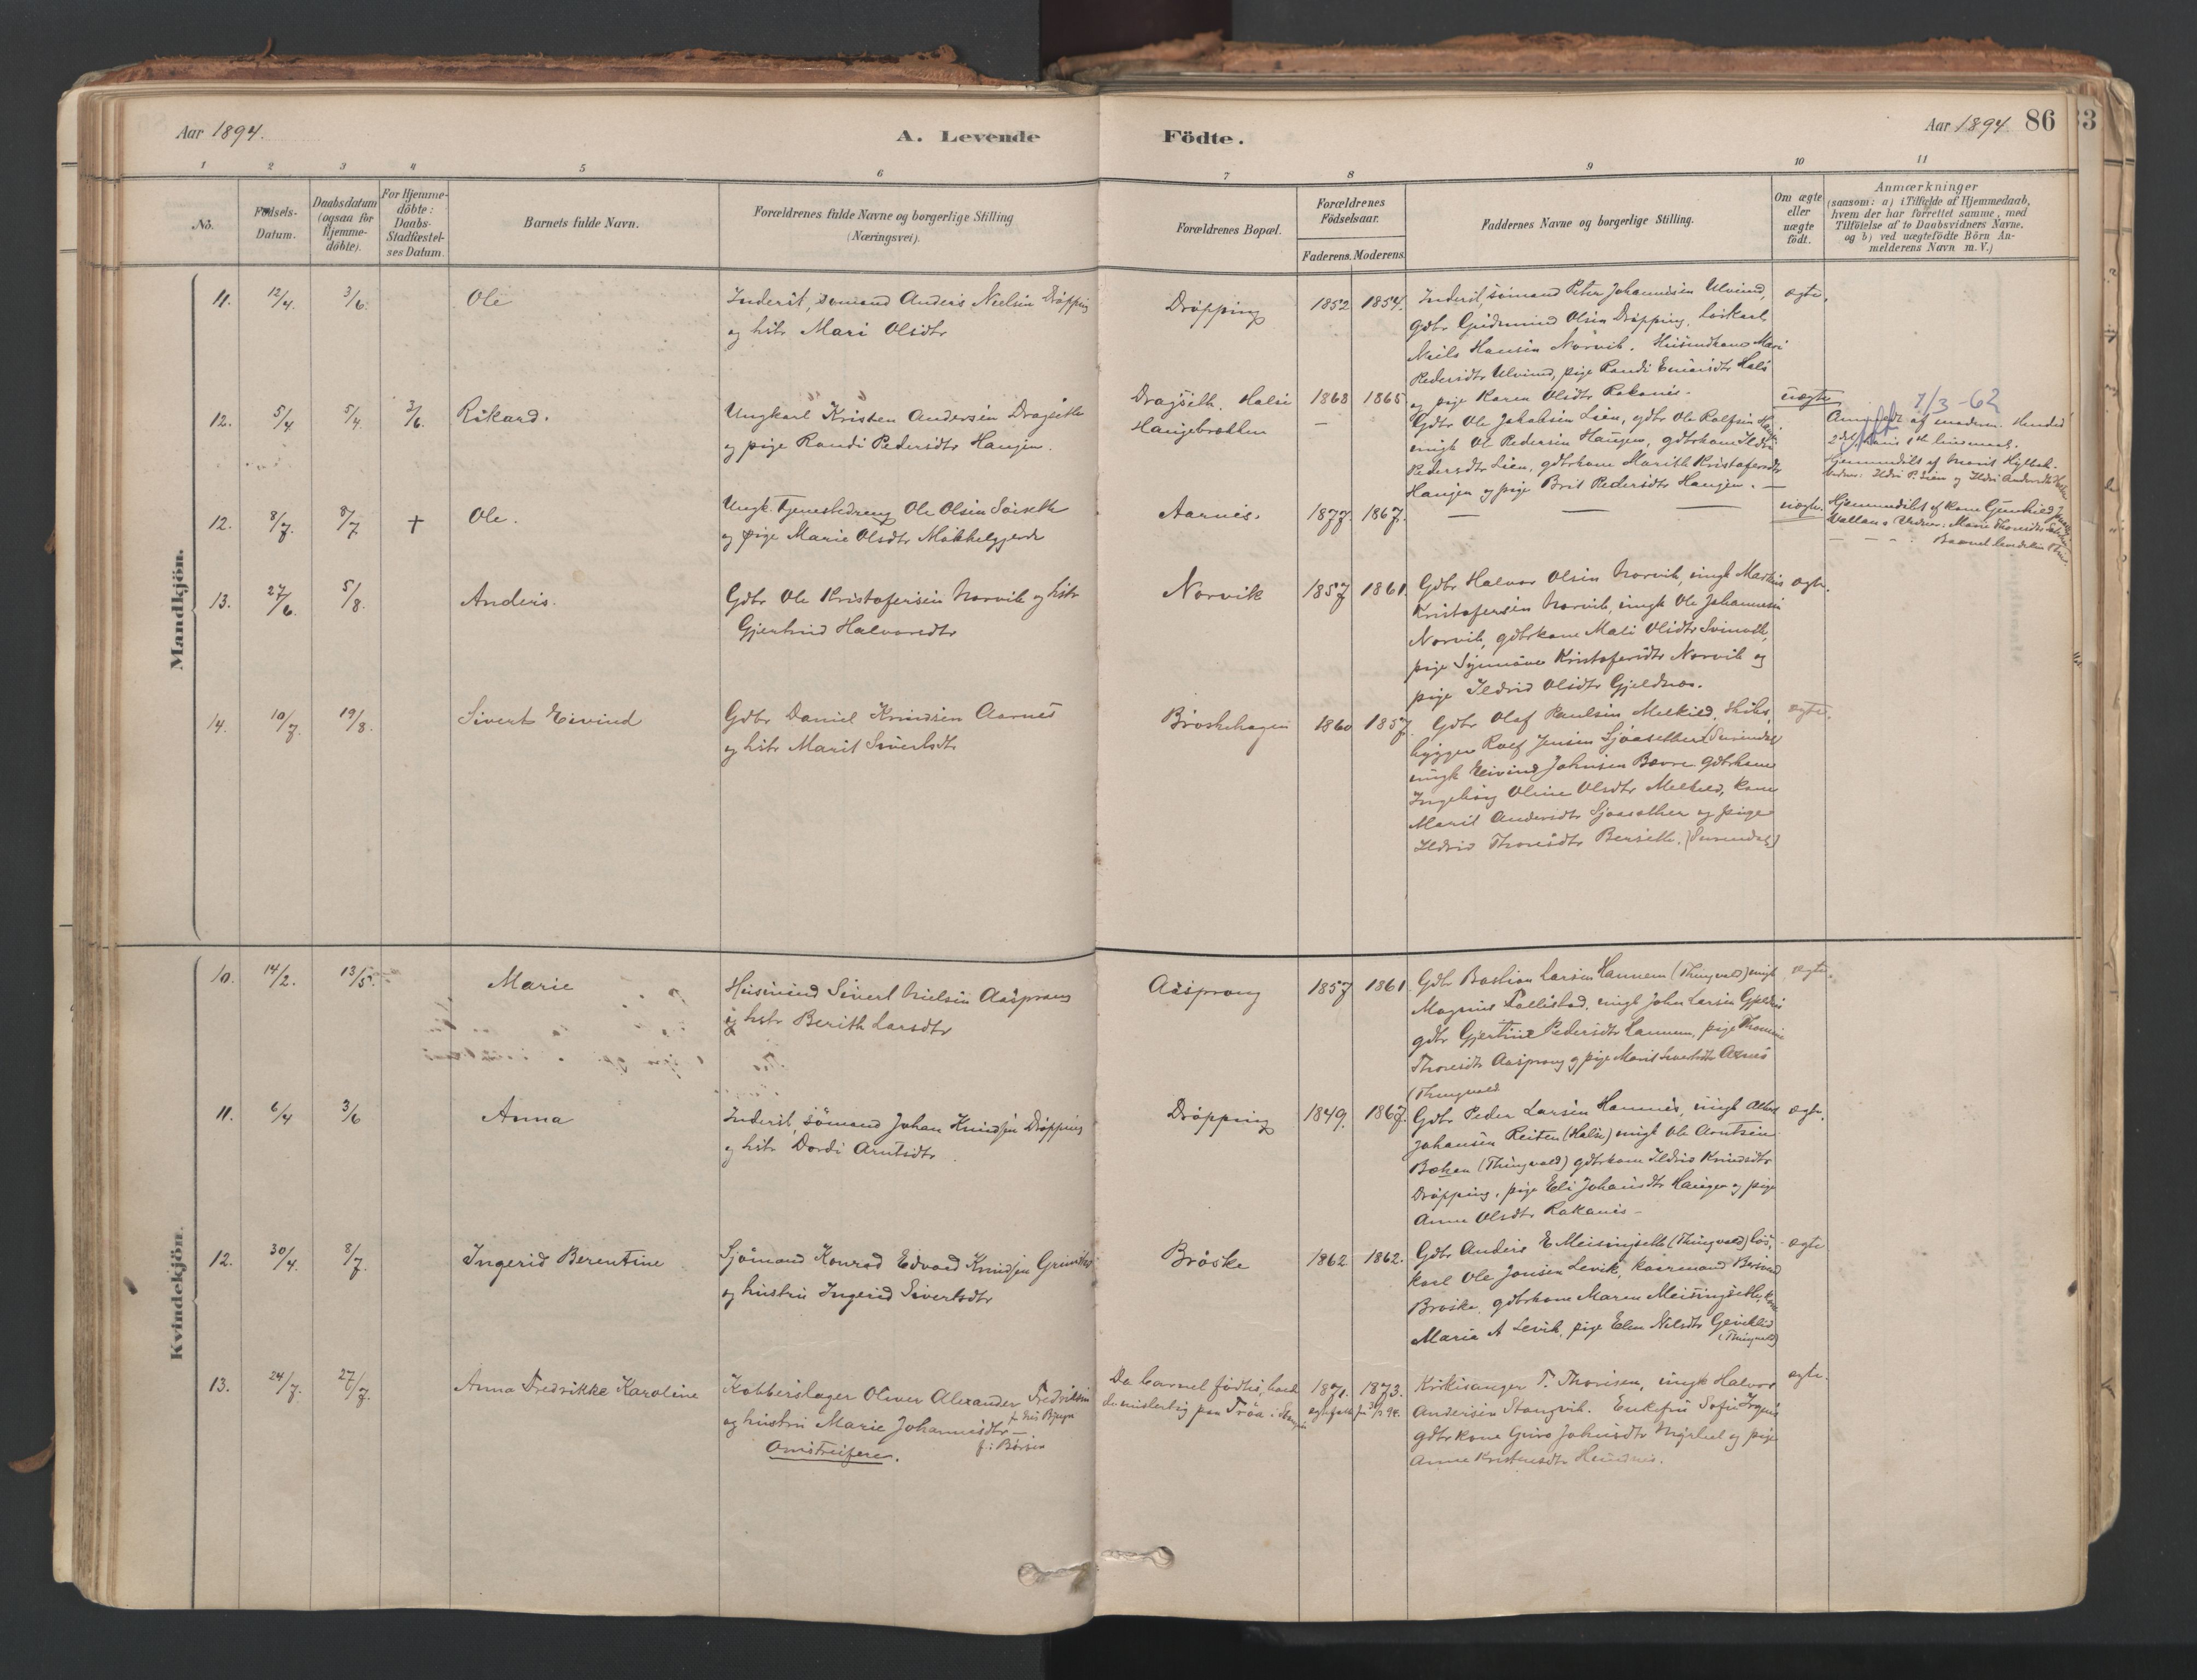 Aar 1894.
A. Levende Födte.
Aar 1894 86
33
1 2 3 4 5 6 7 8 9 10 11
No.
Fødsels-Datum.
Daabsdatum (ogsaa for Hjemme-döbte).
For Hjemme-döbte: Daabs-Stadfæstel-ses Datum.
Barnets fulde Navn.
Forældrenes fulde Navne og borgerlige Stilling (Næringsvei).
Forældrenes Bopæl.
Forældrenes Födselsaar.
Faderens. Moderens.
Faddernes Navne og borgerlige Stilling.
Om ægte eller uægte födt.
Anmærkninger
(saasom: a) i Tilfælde af Hjemmedaab,
hvem der har forrettet samme, med
Tilföielse af to Daabsvidners Navne.
og b) ved uægtefödte Börn An-
melderens Navn m. V.)
Mandkjön.
11. 12/4. 3/6. Ole
Inderst, sömand Anders Nielsen Dröpping
og hstr Mari Olsdtr
Dröpping 1852 1854.
Inderst, sömand Peter Johannesen Ulvund,
gdbr Gudmund Olsen Dröpping, Löskarl
Niels Hansen Norvik. Husmdkone Mari
Pedersdtr Ulvund, pige Randi Einarsdtr Hals
og pige Karen Olsdtr Rakanes.
ægte.
12. 5/4. 5/4. 3/6. Rikard.
Ungkarl Kristen Andersen Dragseth
og pige Randi Pedersdtr Haugen.
Dragseth, Halse 1868 1865
Haugebrotten —
Gdbr Ole Jakobsen Lien, gdbr Ole Rolfsen
ungk Ole Pedersen Haugen, gdbrkone Ildri
Pedersdtr Lien, gdbrkone Marith Kristofersdtr
Haugen og pige Brit Pedersdtr Haugen. —
uægte
1/3-62
Anmeldt af moderen. Hendes
2det, hans 1ste leiermaal.
Hjemmedöbt af Marit
Vidner: Ildri P. Lien og Ildri Andersdtr
12. 8/7. 8/7 + Ole.
Ungk. Tjenestedreng Ole Olsen Söiseth
og pige Marie Olsdtr Mikkelgjerde
Aarnes. 1877. 1867.
— — — —
uægte.
Hjemmedöbt af kone Gunhild
Vidner: Marie Thoresdtr
13. 27/6. 5/8. Anders.
Gdbr Ole Kristofersen Norvik og hstr
Gjertrud Halvorsdtr
Norvik 1857 1861.
Gdbr Halvor Olsen Norvik, ungk Martinus
Kristofersen Norvik, ungk Ole Johannesen
Norvik, gdbrkone Mali Olsdtr Svinvik,
pige Synnöve Kristofersdtr Norvik og
pige Ildrid Olsdtr Gjeldnes.
ægte.
14. 10/7. 19/8. Sivert Eivind
Gdbr Daniel Knudsen Aarnes
og hstr Marit Sivertsdtr
Bröskehagen 1860 1857.
Gdbr Olaf Paulsen Melkild, Skibs-
bygger Rolf Jensen Sjaasether (Surendal)
ungk Eivind Johnsen Bævre gdbrkone
Ingeborg Oline Olsdtr Melkild, kone
Marit Andersdtr Sjaasether og pige
Ildrid Thoresdtr Berseth. (Surendal)
ægte.
Kvindekjön.
10. 14/2. 13/5. Marie
Husmand Sivert Nielsen Aasprong
og hstr Berith Larsdtr
Aasprong 1857 1861.
Gdbr Bastian Larsen Hannem (Thingvold) ungk
Magnus Tallestad, ungk John Larsen Gjeldnes
gdbr Gjertine Pedersdtr Hannem, pige Thomine
Thoresdtr Aasprong og pige Marit Sivertsdtr Aarnes
(Thingvold
ægte.
11. 6/4 3/6 Anna
Inderst, sömand Johan Knudsen Dröpping
og hstr Dordi Arntsdtr.
Dröpping 1849. 1867.
Gdbr Peder Larsen Hamnes, ungk Albert
Johansen Reiten (Halse) ungk Ole Arntsen
Bakken (Thingvold) gdbrkone Ildrid Knudsdtr
Dröpping, pige Eli Johansdtr Haugen og pige
Anne Olsdtr Rakanes —
ægte.
12. 30/4. 8/7. Ingerid Berentine
Sjömand Konrad Edvard Knudsen
og hustru Ingerid Sivertsdtr
Bröske 1862 1862.
Gdbr Anders E Meisingseth (Thingvold) lös-
karl Ole Jonsen Levik, kaarmand
Bröske, gdbrkone Maren Meisingseth, kone
Marie A Levik, pige Elen Nilsdtr
(Thingvold)
ægte
13. 24/7. 27/7. Anna Fredrikke Karoline
Kobberslager Oliver Alexander Fredriksen
og hustru Marie Johannesdtr —
f. i Börsen
Omstreifere.
Da barnet födtes, havde
de midlertidig paa Tröa i
1871. 1873.
Kirkesanger T. Thoresen, ungk Halvor
Andersen Stangvik. Enkefru Sofie
gdbrkone Guro Johnsdtr og pige
Anne Kristensdtr
ægte.